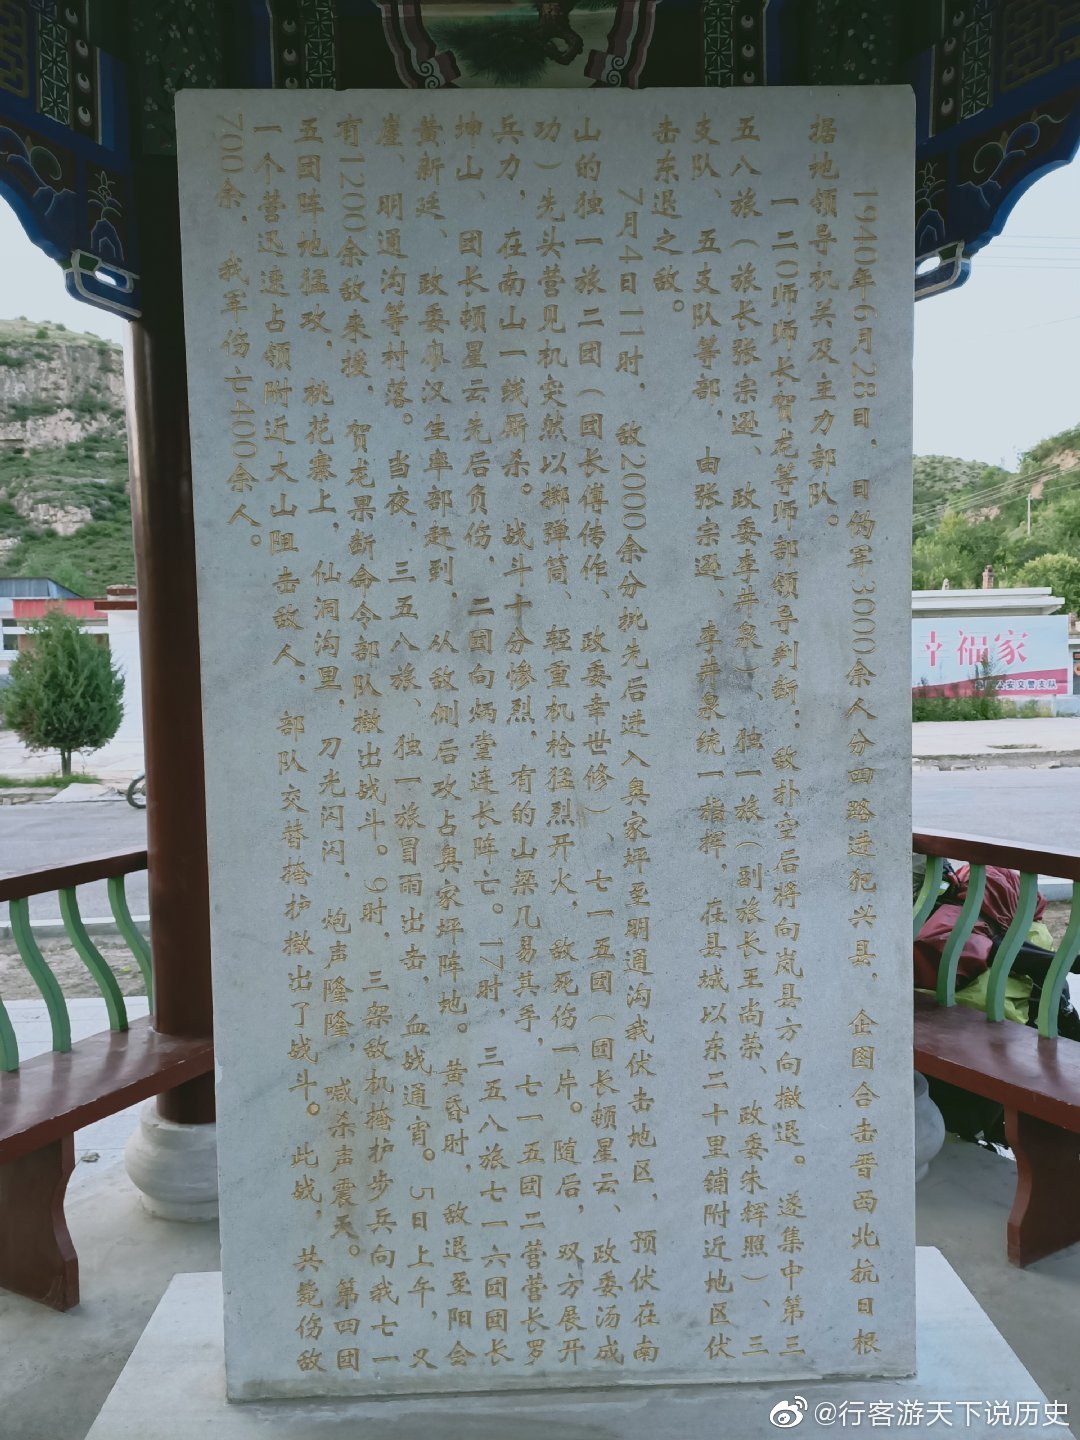 1940年6月28日，日伪军3000余人分四路进犯兴县，企图合击晋西北抗日根
据地领导机关及主力部队。
一二0师师长贺龙等师部领导判断：敌扑空后将向岚县方向撤退。遂集中第三
五八旅（旅长张宗逊、政委李井泉）、独一旅（副旅长王尚荣、政委朱辉照）、三
支队、五支队等部，由张宗逊、李井泉统一指挥，在县城以东二十里铺附近地区伏
击东退之敌。
7月4日11时，敌2000余分批先后进入奥家坪至明通沟我伏击地区，预伏在南
山的独一旅二团（团长傅传作、政委幸世修）、七一五团（团长顿星云、政委汤成
功）先头营见机突然以掷弹筒、轻重机枪猛烈开火，敌死伤一片。随后，双方展开
兵力，在南山一线厮杀。战斗十分惨烈，有的山梁几易其手，七一五团二营营长罗
坤山、团长顿星云先后负伤，二团向炳堂连长阵亡。17时，三五八旅七一六团团长
黄新廷、政委廖汉生率部赶到，从敌侧后攻占奥家坪阵地。黄昏时，敌退至阳会
崖、明通沟等村落。当夜，三五八旅、独一旅冒雨出击，血战通宵。5日上午，又
有1200余敌来援，贺龙果断命令部队撤出战斗。9时，三架敌机掩护步兵向我七一
五团阵地猛攻，桃花寨上，仙洞沟里，刀光闪闪，炮声隆隆，喊杀声震天。第四团
一个营迅速占领附近大山阻击敌人，部队交替掩护撤出了战斗。此战，共毙伤敌
700余，我军伤亡400余人。
幸福家
公安交警支队
@行客游天下说历史